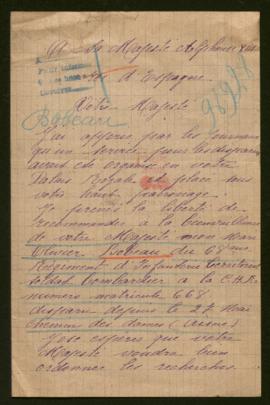 A Sa Majesté Alphonse XIII
Roi d'Espagne.
Votre Majesté
Bobeau
J'ai appris par les journaux
qu'un service pour les disparus
avait été organisé en votre
Palais Royal et placé sous
votre haut patronage.
Je prends la liberté de
recommander à la
de votre Majesté mon mari
Olivier Bobeau du 68ème
Régiment d'Infanterie Territorial
Soldat bombardier à la C.H.R.
numéro matricule 668
disparu depuis le 27 Mai
chemin des dames (Aisne)
J'ose espérer que votre
Majesté voudra bien
ordonner les recherches